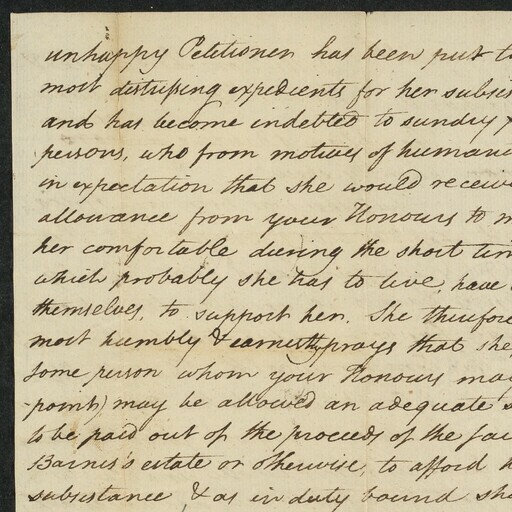 unhappy Petitioner has been put t
most distressing expedients for her subsis
and has become indebted to sundry
persons, who from motives of humani
in expectation that she would receiv
allowance from your Honours to m
her comfortable during the short tim
which probably she has to live, have
themselves, to support her. She therefor
most humbly & earnestly prays that she
some person whom your Honours may
-point) may be allowed an adequate s
to be paid out of the proceeds of the sai
Barnes's estate or otherwise, to afford h
subsistance, & as in duty bound sh